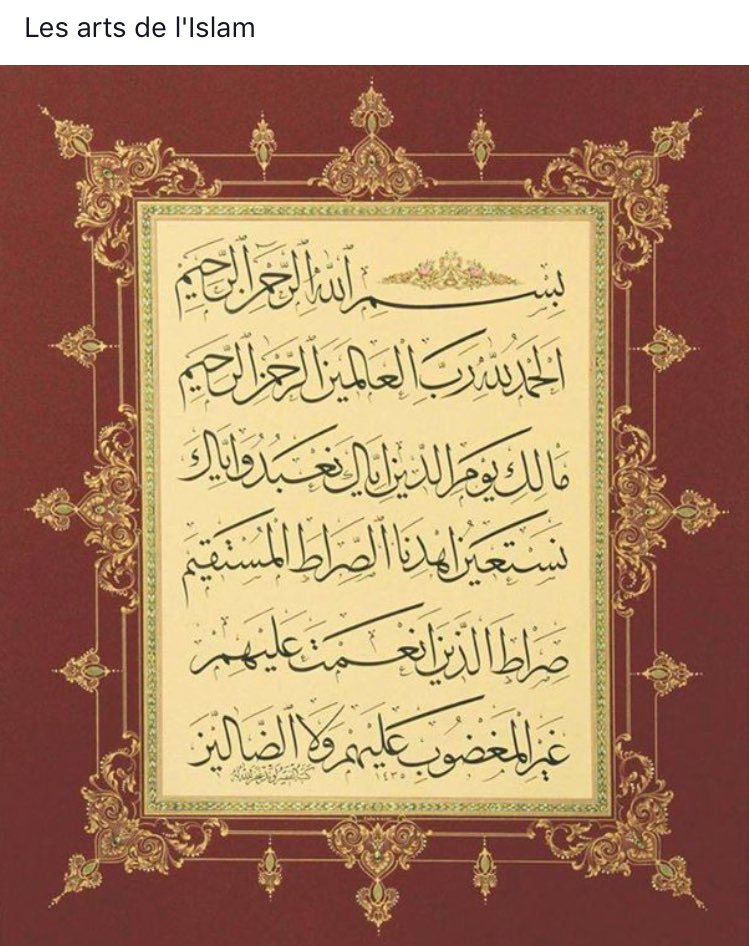 Les arts de l'Islam
بسم الله الرحمن الرحيم
الحمد لله رب العالمين الرحمن الرحيم
مالك يوم الدين اياك نعبد واياك
نستعين اهدنا الصراط المستقيم
صراط الذين انعمت عليهم
غير المغضوب عليهم ولا الضالين
١٤٣٥